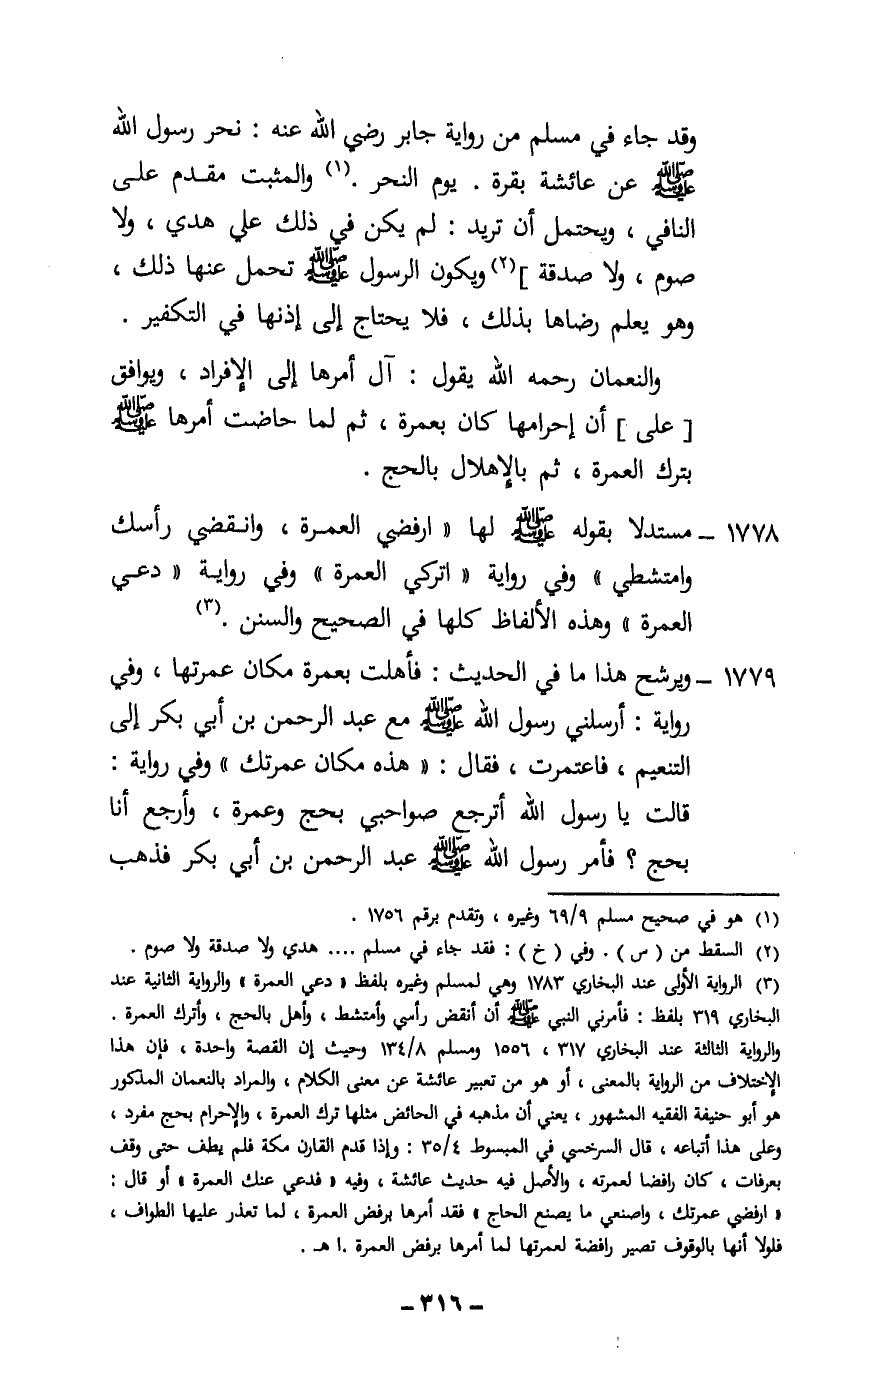 وقد جاء في مسلم من رواية جابر رضي الله عنه : نحر رسول الله
ﷺ عن عائشة بقرة . يوم النحر .(١) والمثبت مقدم على
النافي ، ويحتمل أن تريد : لم يكن في ذلك علي هدي ، ولا
صوم ، ولا صدقة ](٢) ويكون الرسول ﷺ تحمل عنها ذلك ،
وهو يعلم رضاها بذلك ، فلا يحتاج إلى إذنها في التكفير .
والنعمان رحمه الله يقول : آل أمرها إلى الإفراد ، ويوافق
[ على ] أن إحرامها كان بعمرة ، ثم لما حاضت أمرها ﷺ
بترك العمرة ، ثم بالإهلال بالحج .
١٧٧٨ – مستدلا بقوله ﷺ لها « ارفضي العمرة ، وانقضي رأسك
وامتشطي » وفي رواية « اتركي العمرة » وفي رواية « دعي
العمرة » وهذه الألفاظ كلها في الصحيح والسنن .(٣)
١٧٧٩ – ويرشح هذا ما في الحديث : فأهلت بعمرة مكان عمرتها ، وفي
رواية : أرسلني رسول الله ﷺ مع عبد الرحمن بن أبي بكر إلى
التنعيم ، فاعتمرت ، فقال : « هذه مكان عمرتك » وفي رواية :
قالت يا رسول الله أترجع صواحبي بحج وعمرة ، وأرجع أنا
بحج ؟ فأمر رسول الله ﷺ عبد الرحمن بن أبي بكر فذهب
(١) هو في صحيح مسلم ٦٩/٩ وغيره ، وتقدم برقم ١٧٥٦ .
(٢) السقط من ( س ) . وفي ( خ ) : فقد جاء في مسلم .... هدي ولا صدقة ولا صوم .
(٣) الرواية الأولى عند البخاري ١٧٨٣ وهي لمسلم وغيره بلفظ « دعي العمرة » والرواية الثانية عند
البخاري ٣١٩ بلفظ : فأمرني النبي ﷺ أن أنقض رأسي وأمتشط ، وأهل بالحج ، وأترك العمرة .
والرواية الثالثة عند البخاري ٣١٧ ، ١٥٥٦ ومسلم ١٣٤/٨ وحيث إن القصة واحدة ، فإن هذا
الإختلاف من الرواية بالمعنى ، أو هو من تعبير عائشة عن معنى الكلام ، والمراد بالنعمان المذكور
هو أبو حنيفة الفقيه المشهور ، يعني أن مذهبه في الحائض مثلها ترك العمرة ، والإحرام بحج مفرد ،
وعلى هذا أتباعه ، قال السرخسي في المبسوط ٣٥/٤ : وإذا قدم القارن مكة فلم يطف حتى وقف
بعرفات ، كان رافضا لعمرته ، والأصل فيه حديث عائشة ، وفيه « فدعي عنك العمرة » أو قال :
« ارفضي عمرتك ، واصنعي ما يصنع الحاج » فقد أمرها برفض العمرة ، لما تعذر عليها الطواف ،
فلولا أنها بالوقوف تصير رافضة لعمرتها لما أمرها برفض العمرة .ا هـ .
– ٣١٦ –